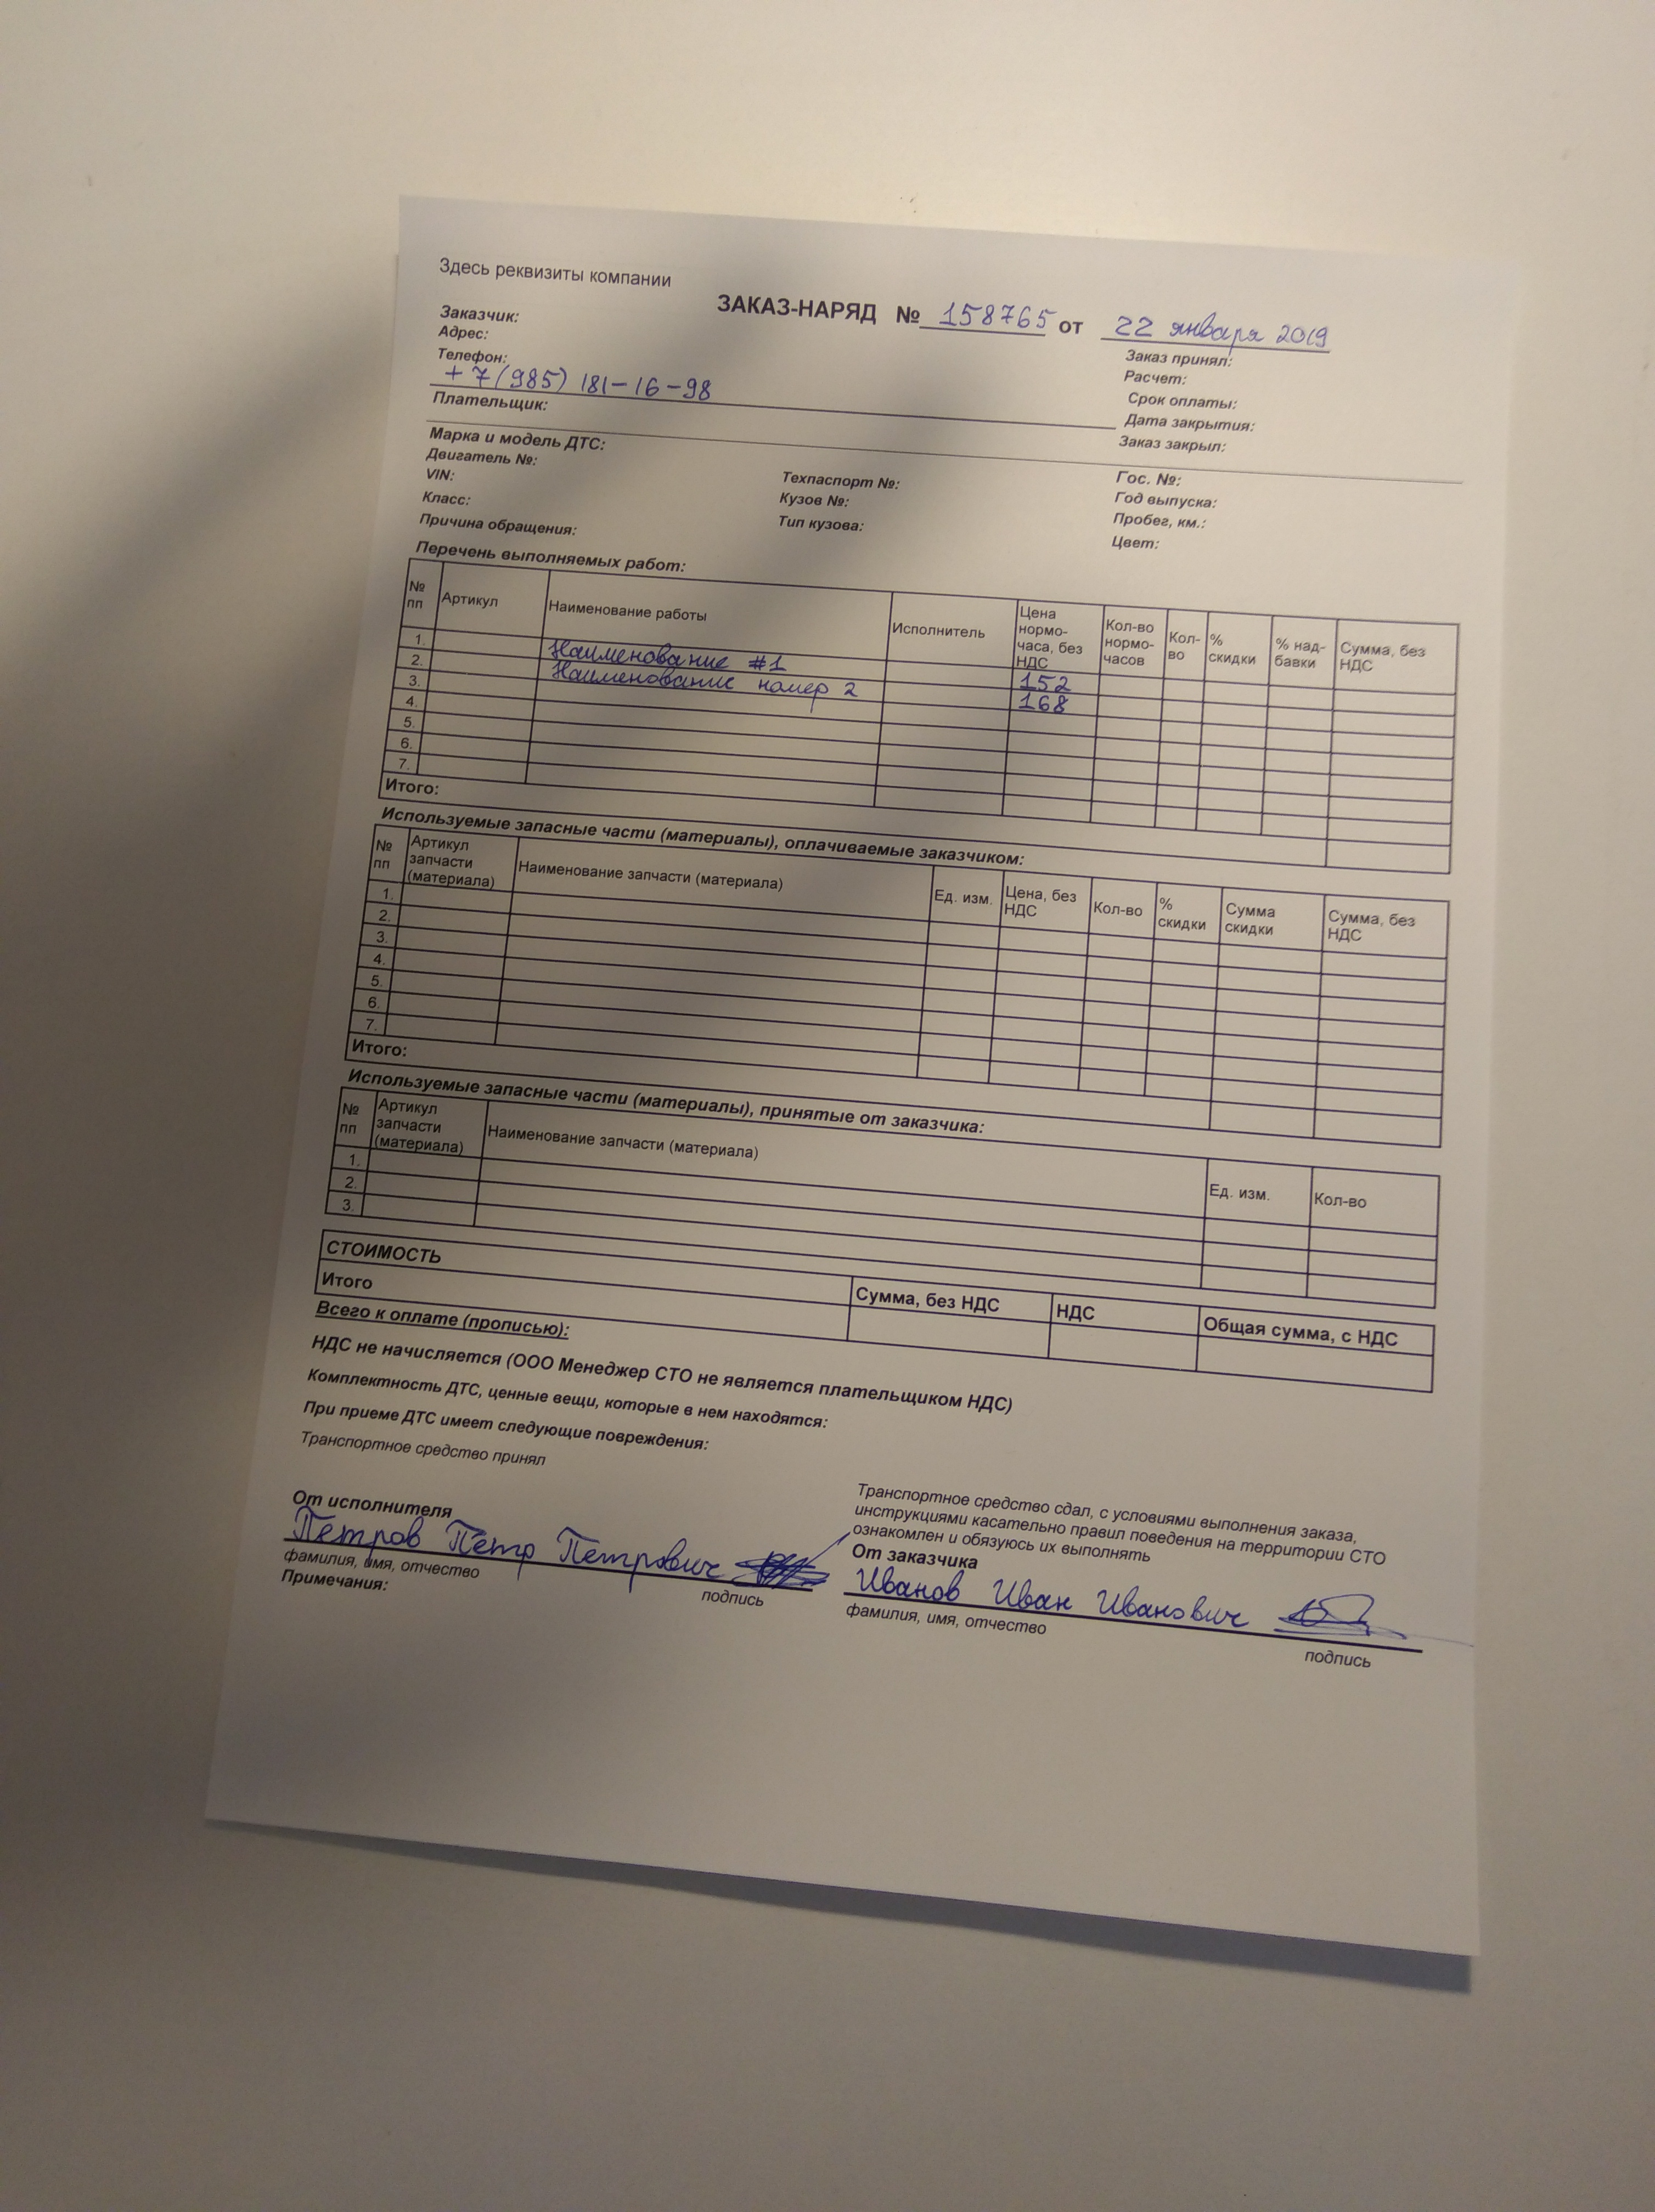 Здесь реквизиты компании
ЗАКАЗ-НАРЯД № 158765 от 22 января 2019
Заказчик:
Адрес:
Телефон:
+7(985) 181-16-98
Плательщик:
Заказ принял:
Расчет:
Срок оплаты:
Дата закрытия:
Заказ закрыл:
Марка и модель ДТС:
Двигатель №:
VIN:
Класс:
Причина обращения:
Техпаспорт №:
Кузов №:
Тип кузова:
Гос. №:
Год выпуска:
Пробег, км.:
Цвет:
Перечень выполняемых работ:
№ пп Артикул Наименование работы Исполнитель Цена нормо-часа, без НДС Кол-во нормо-часов Кол-во % скидки % над-бавки Сумма, без НДС
1. Наименование #1 152
2. Наименование номер 2 168
3.
4.
5.
6.
7.
Итого:
Используемые запасные части (материалы), оплачиваемые заказчиком:
№ пп Артикул запчасти (материала) Наименование запчасти (материала) Ед. изм. Цена, без НДС Кол-во % скидки Сумма скидки Сумма, без НДС
1.
2.
3.
4.
5.
6.
7.
Итого:
Используемые запасные части (материалы), принятые от заказчика:
№ пп Артикул запчасти (материала) Наименование запчасти (материала) Ед. изм. Кол-во
1.
2.
3.
СТОИМОСТЬ Сумма, без НДС НДС Общая сумма, с НДС
Итого
Всего к оплате (прописью):
НДС не начисляется (ООО Менеджер СТО не является плательщиком НДС)
Комплектность ДТС, ценные вещи, которые в нем находятся:
При приеме ДТС имеет следующие повреждения:
Транспортное средство принял
От исполнителя
Петров Петр Петрович
фамилия, имя, отчество
подпись
Примечания:
Транспортное средство сдал, с условиями выполнения заказа,
инструкциями касательно правил поведения на территории СТО
ознакомлен и обязуюсь их выполнять
От заказчика
Иванов Иван Иванович
фамилия, имя, отчество
подпись